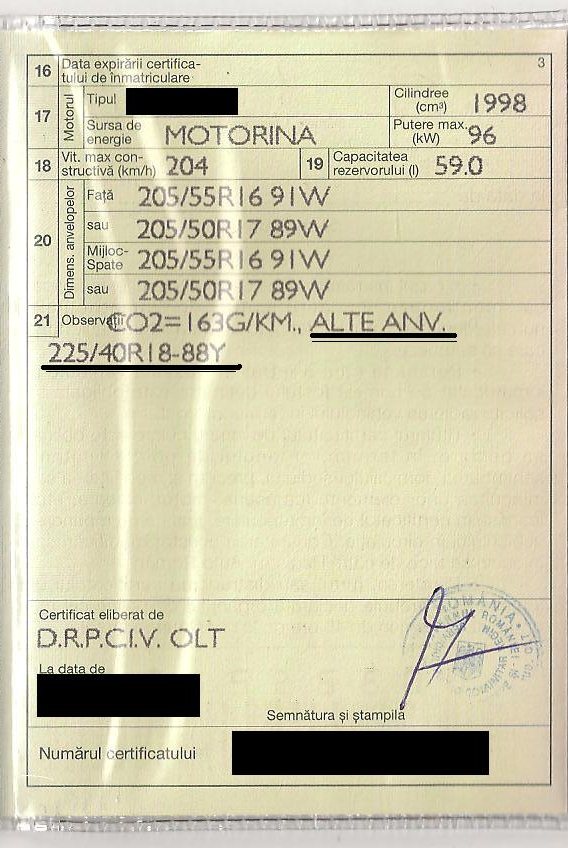 3
16 Data expirării certifica-
tului de înmatriculare
17 Motorul Tipul Cilindree (cm³) 1998
Sursa de energie MOTORINA Putere max. (kW) 96
18 Vit. max con-
structivă (km/h) 204 19 Capacitatea rezervorului (l) 59.0
20 Dimens. anvelopelor Față 205/55R16 91W
sau 205/50R17 89W
Mijloc-
Spate 205/55R16 91W
sau 205/50R17 89W
21 Observații CO2=163G/KM., ALTE ANV.
225/40R18-88Y
Certificat eliberat de
D.R.P.C.I.V. OLT
La data de
Semnătura și ștampila
ROMÂNIA
Numărul certificatului